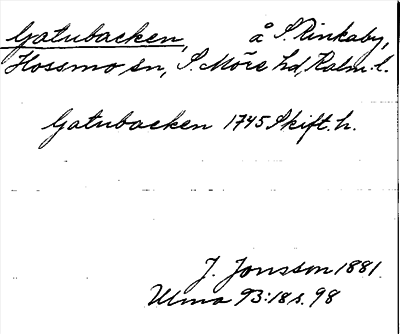 Gatubacken, å S. Rinkaby,
Hossmo sn, S. Möre hd, Kalm. l.
Gatubacken 1745 Skift. h.
J. Jonsson 1881.
Ulma 93:18 s. 98